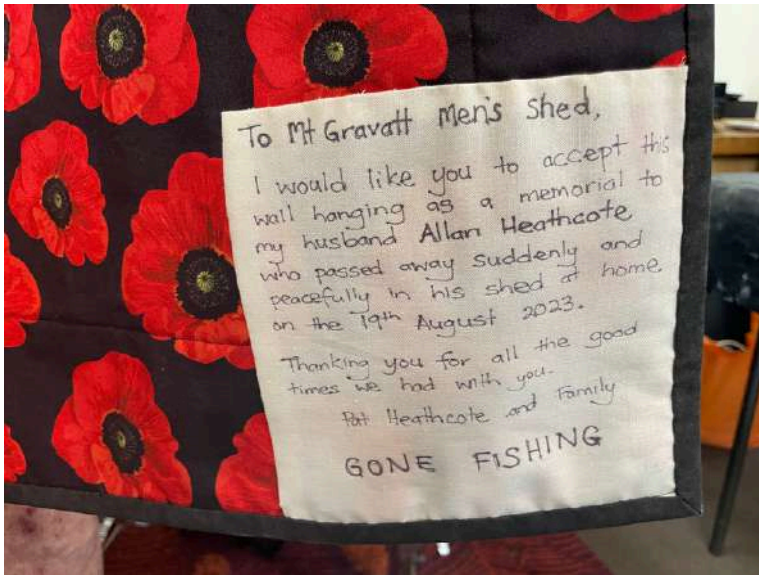 To Mt Gravatt Men's Shed,
I would like you to accept this
wall hanging as a memorial to
my husband Allan Heathcote
who passed away suddenly and
peacefully in his shed at home
on the 19th August 2023.
Thanking you for all the good
times we had with you.
Pat Heathcote and Family
GONE FISHING